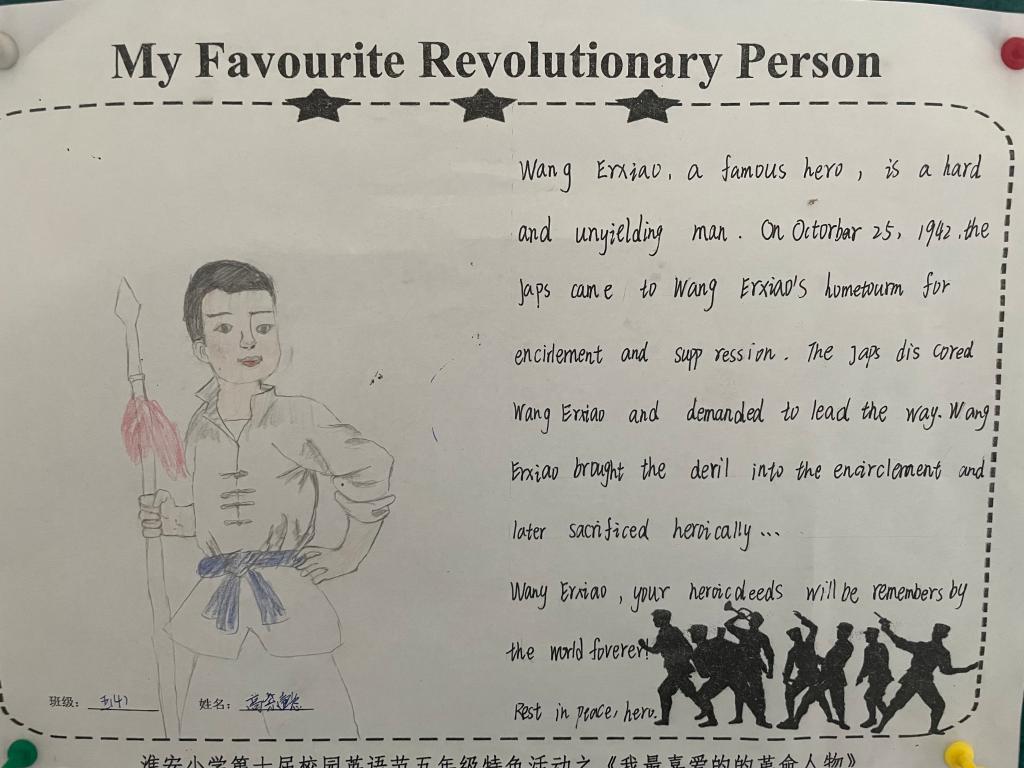 My Favourite Revolutionary Person
Wang Erxiao, a famous hero, is a hard
and unyielding man. On Octorbar 25, 1942, the
Japs came to Wang Erxiao's hometourm for
encirlement and supp ression. The Japs dis cored
Wang Erxiao and demanded to lead the way. Wang
Erxiao brought the deril into the encirclement and
later sacrificed heroically...
Wang Erxiao, your heroic deeds will be remembers by
the world forerer!
Rest in peace, hero.
班级: 五(4) 姓名:
淮安小学第十届校园英语节五年级特色活动之《我最喜爱的的革命人物》